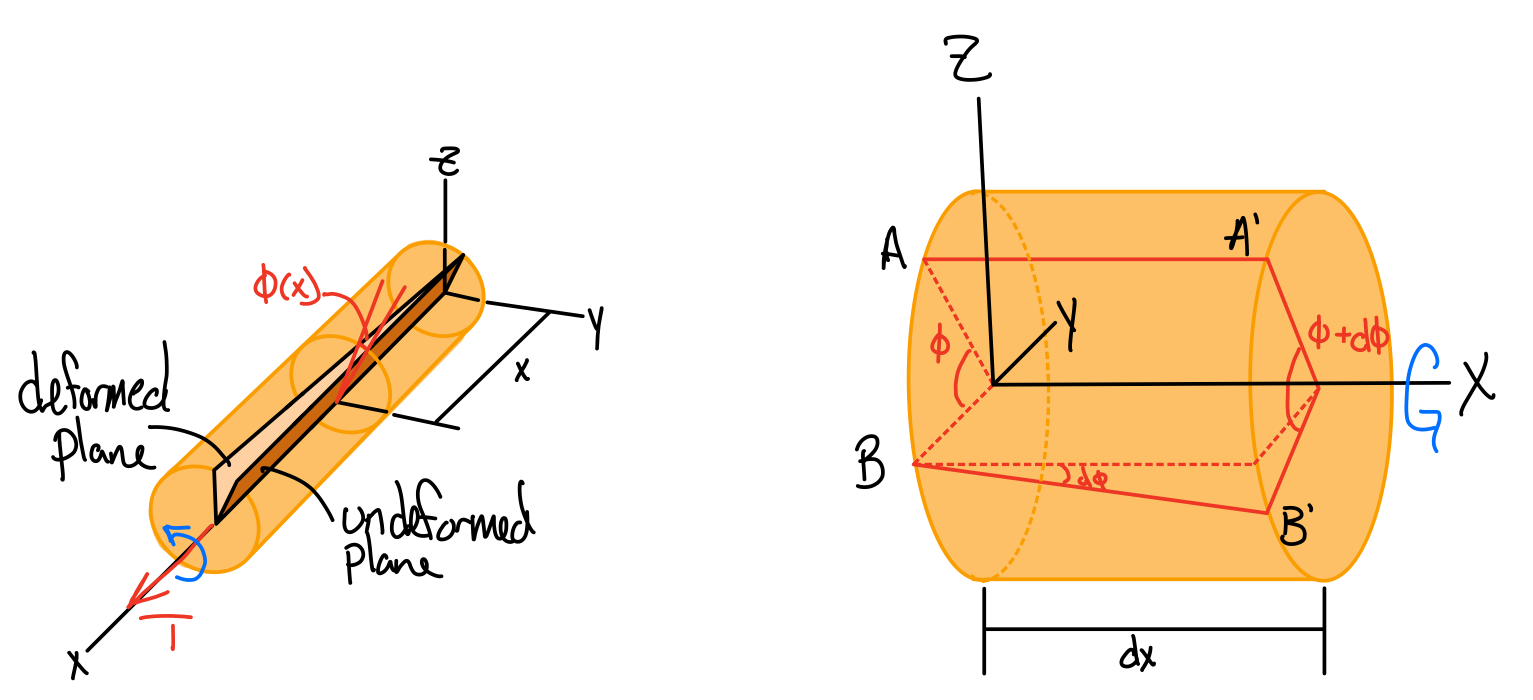 z
ϕ(x)
y
x
deformed
plane
undeformed
plane
T
x
Z
A
A'
Y
ϕ
ϕ+dϕ
X
B
dϕ
B'
dx